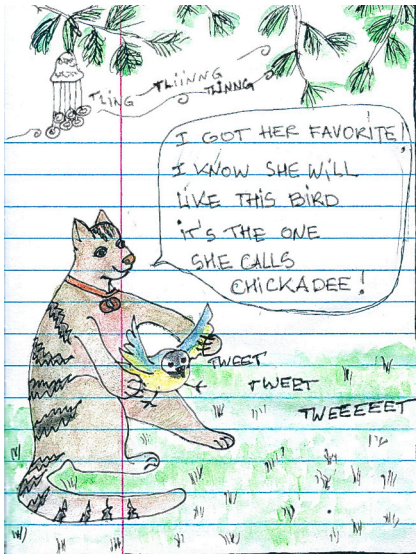 TLING TLIINNG TLINNG
I GOT HER FAVORITE!
I KNOW SHE WILL
LIKE THIS BIRD
IT'S THE ONE
SHE CALLS
CHICKADEE!
TWEET
TWEET
TWEEEEET